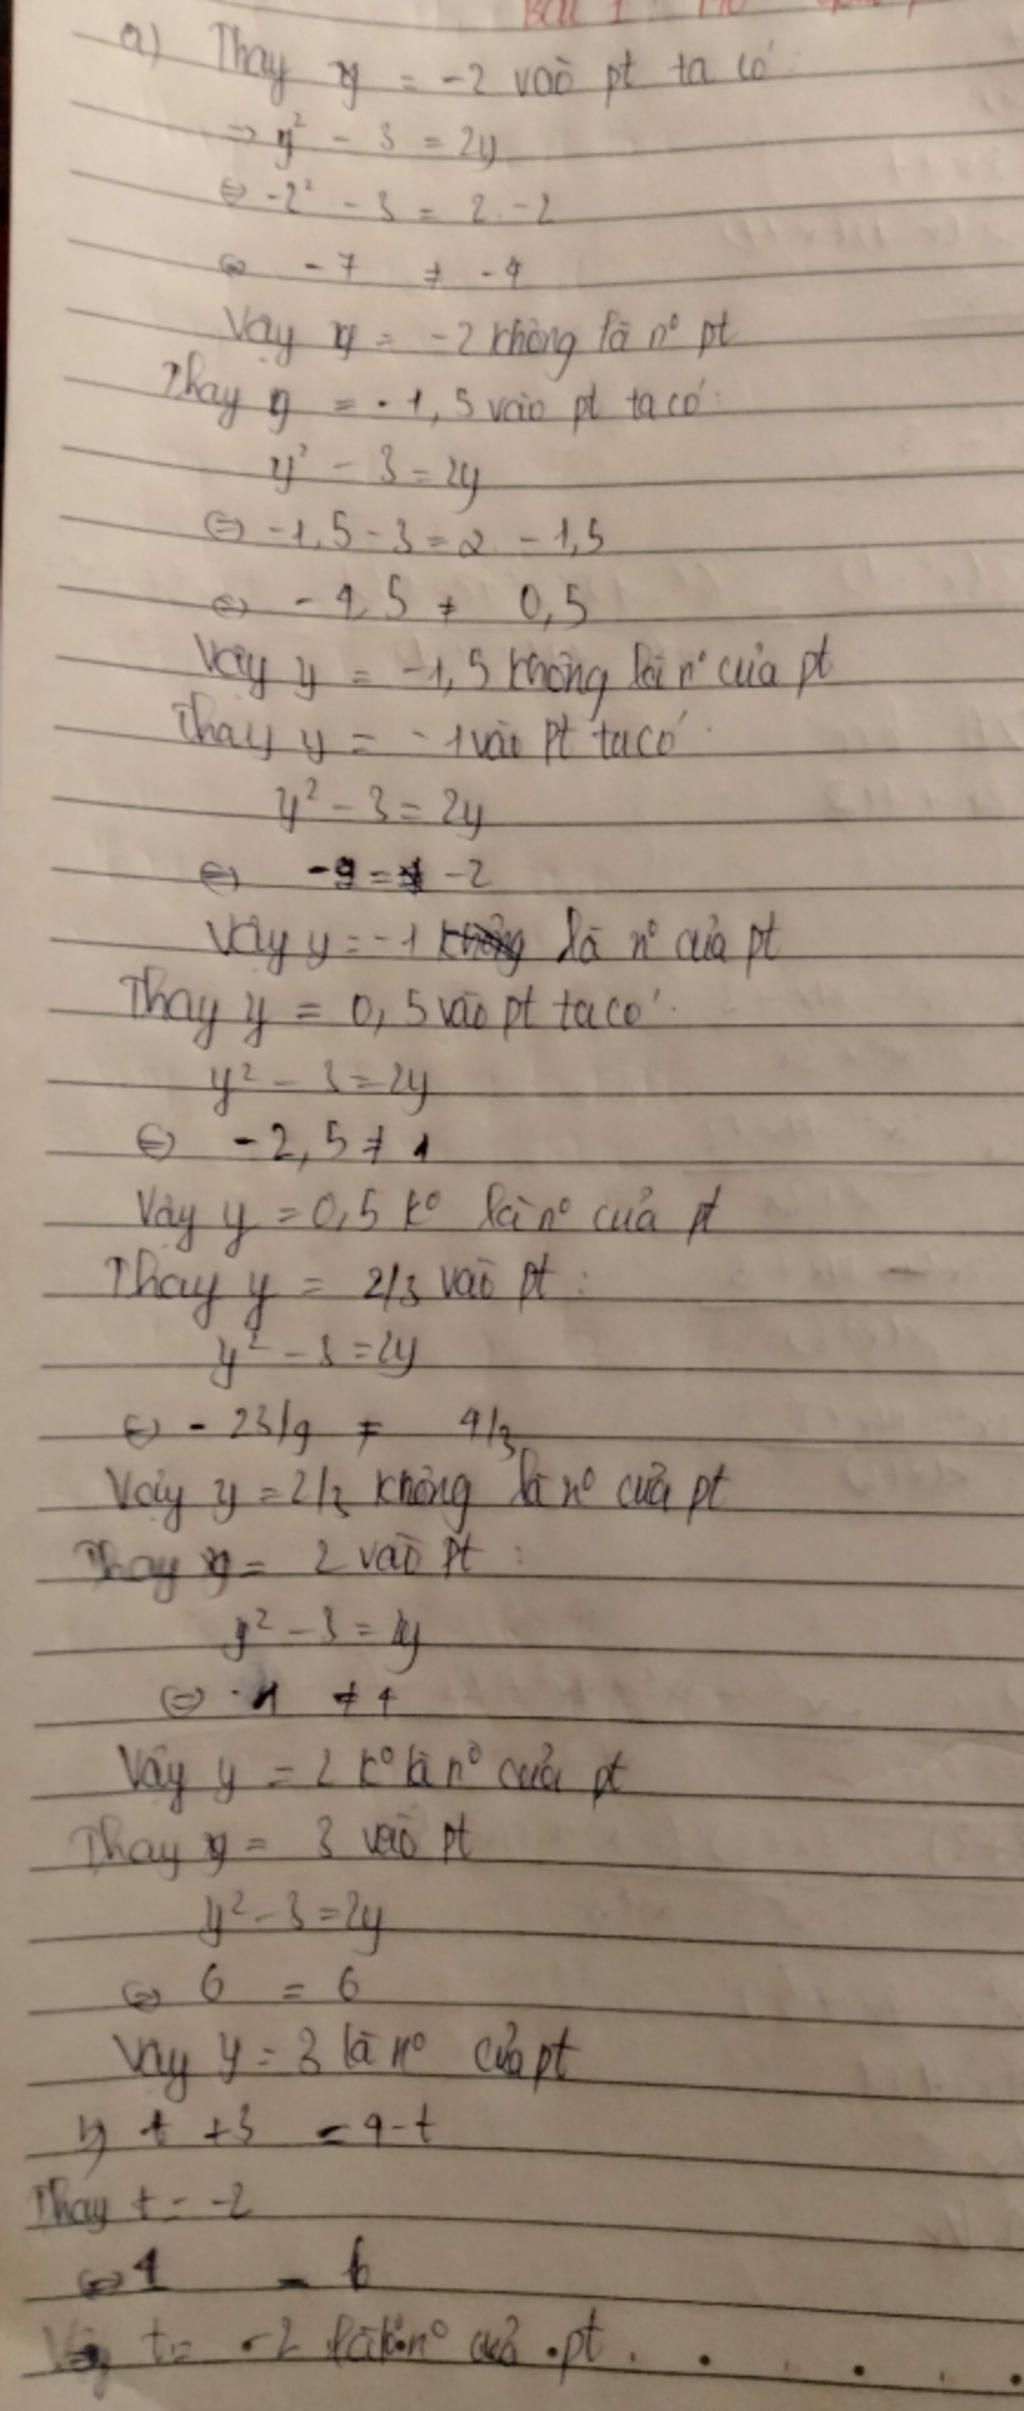 a) Thay y = -2 vào pt ta có
=> y² - 3 = 2y
⇔ -2² - 3 = 2. -2
⇔ -7 ≠ -4
Vậy y = -2 không là n° pt
Thay y = -1,5 vào pt ta có:
y² - 3 = 2y
⇔ -1,5 - 3 = 2. -1,5
⇔ -4,5 ≠ 0,5
Vậy y = -1,5 không là n° của pt
Thay y = -1 vào pt ta có
y² - 3 = 2y
⇔ = -2
Vậy y = -1 là n° của pt
Thay y = 0,5 vào pt ta có:
y² - 3 = 2y
⇔ -2,5 ≠ 1
Vậy y = 0,5 k° là n° của pt
Thay y = 2/3 vào pt:
y² - 3 = 2y
⇔ - 23/9 ≠ 4/3
Vậy y = 2/3 không là n° của pt
Thay y = 2 vào pt:
y² - 3 = 2y
⇔ ≠ 4
Vậy y = 2 k° là n° của pt
Thay y = 3 vào pt
y² - 3 = 2y
⇔ 6 = 6
Vậy y = 3 là n° của pt
b) t + 3 = 4 - t
Thay t = -2
⇔ 1 = 6
Vậy t = -2 n° của pt